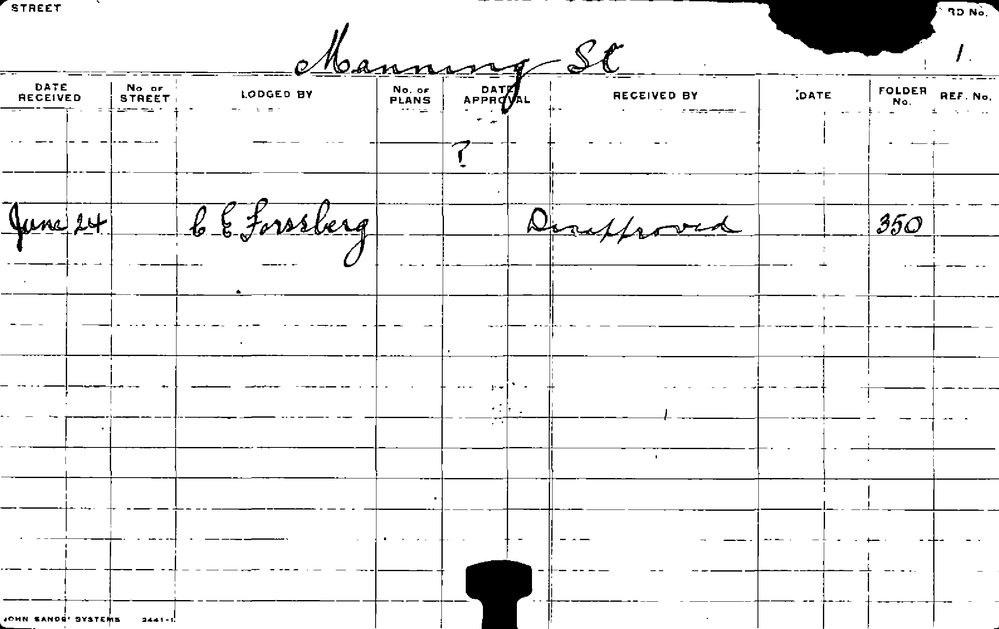 STREET
RD No.
Manning St
1.
DATE RECEIVED No OF STREET LODGED BY No. OF PLANS DATE APPROVAL RECEIVED BY DATE FOLDER No. REF. No.
?
June 24 C E Forssberg Disapproved 350
JOHN SANDS' SYSTEMS 2441-1